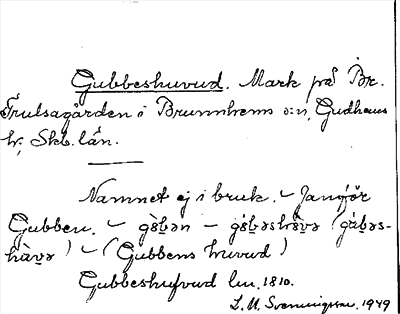 Gubbeshuvud. Mark på Br.
Trulsagården i Brunnhems s:n, Gudhems
hr, Skb. län.
Namnet ej i bruk. – Jämför
Gubben. –
(Gubbens huvud)
Gubbeshufvud lm. 1810.
L. M. Svenningsson. 1949